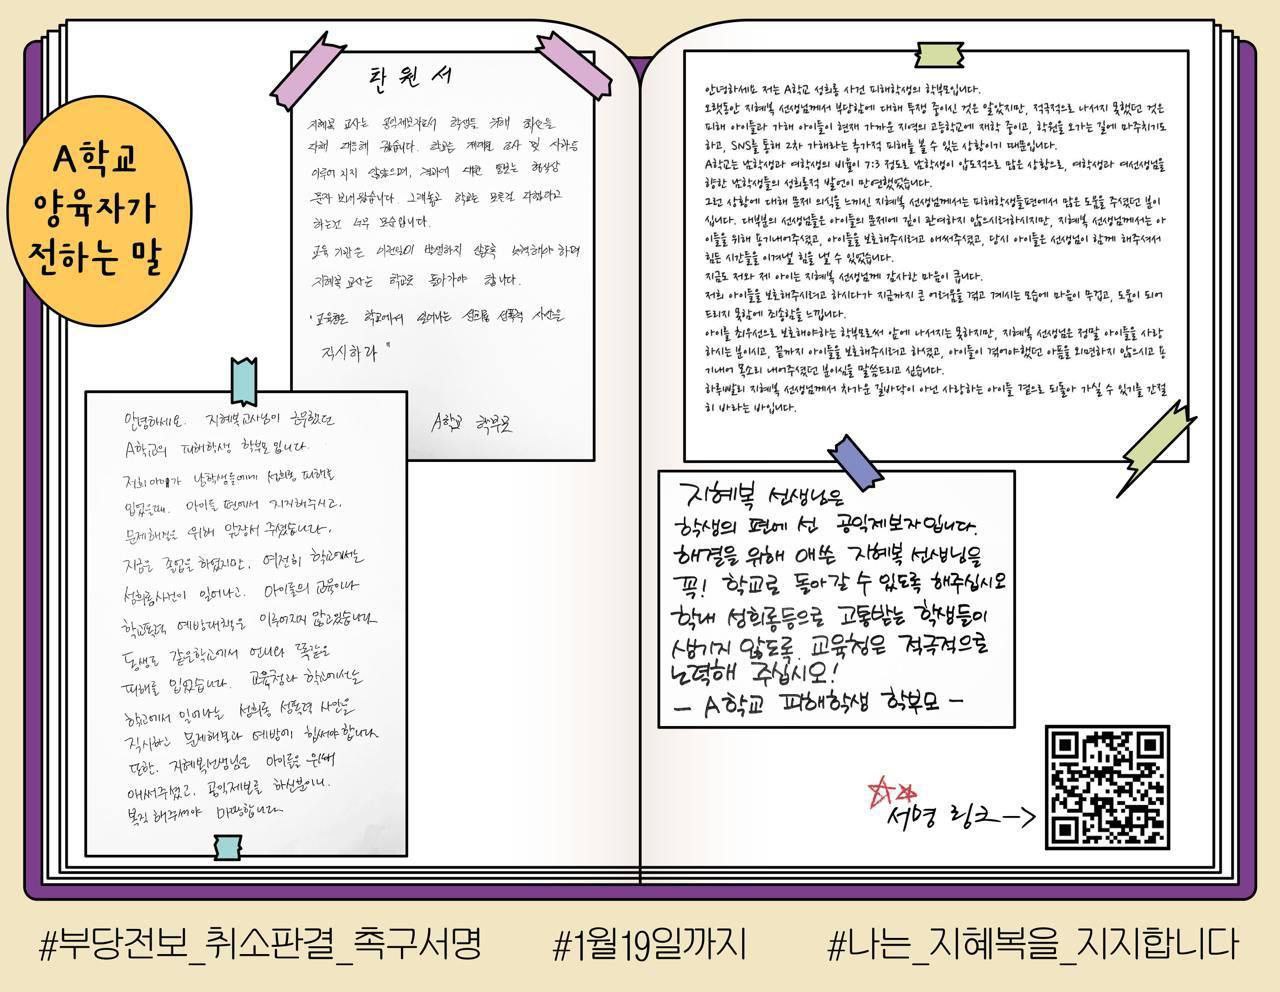 A학교
양육자가
전하는 말
탄원서
지혜복 교사는 공익제보자로서 학생을 위해 최선을
다해
이루어지지 않았으며,
하는건 너무 모순입니다.
교육 기관은 이런일이 발생하지 않도록 노력해야 하며
지혜복 교사는 학교로 돌아가야 합니다.
"교육청은 학교에서 일어나는 성희롱 성폭력 사안을
직시하라"
A학교 학부모
안녕하세요. 지혜복교사님이 근무했던
A학교의 피해학생 학부모입니다.
저희 아이가 남학생들에게 성희롱 피해를
입었을때. 아이들 편에서 지지해주시고.
문제해결을 위해 앞장서 주셨습니다.
지금은 졸업을 하였지만, 여전히 학교에서는
성희롱사건이 일어나고. 아이들의 교육이나
학교폭력 예방대책은 이루어지지 않고있습니다.
동생도 같은학교에서 언니와 똑같은
피해를 입었습니다. 교육청과 학교에서는
학교에서 일어나는 성희롱 성폭력 사안을
직시하고 문제해결과 예방에 힘써야 합니다.
또한, 지혜복선생님은 아이들을 위해
애써주셨고. 공익제보를 하신분이니.
복직 해주셔야 마땅합니다.
안녕하세요 저는 A학교 성희롱 사건 피해학생의 학부모입니다.
오랫동안 지혜복 선생님께서 부당함에 대해 투쟁 중이신 것은 알았지만, 적극적으로 나서지 못했던 것은
피해 아이들과 가해 아이들이 현재 가까운 지역의 고등학교에 재학 중이고, 학원을 오가는 길에 마주치기도
하고, SNS를 통해 2차 가해라는 추가적 피해를 볼 수 있는 상황이기 때문입니다.
A학교는 남학생과 여학생의 비율이 7:3 정도로 남학생이 압도적으로 많은 상황으로, 여학생과 여선생님을
향한 남학생들의 성희롱적 발언이 만연했었습니다.
그런 상황에 대해 문제 의식을 느끼신 지혜복 선생님께서는 피해학생들편에서 많은 도움을 주셨던 분이
십니다. 대부분의 선생님들은 아이들의 문제에 깊이 관여하지 않으시려하시지만, 지혜복 선생님께서는 아
이들을 위해 용기내어주셨고, 아이들을 보호해주시려고 애써주셨고, 당시 아이들은 선생님이 함께 해주셔서
힘든 시간들을 이겨낼 힘을 낼 수 있었습니다.
지금도 저와 제 아이는 지혜복 선생님께 감사한 마음이 큽니다.
저희 아이들을 보호해주시려고 하시다가 지금까지 큰 어려움을 겪고 계시는 모습에 마음이 무겁고, 도움이 되어
드리지 못함에 죄송함을 느낍니다.
아이를 최우선으로 보호해야하는 학부모로써 앞에 나서지는 못하지만, 지혜복 선생님은 정말 아이들을 사랑
하시는 분이시고, 끝까지 아이들을 보호해주시려고 하셨고, 아이들이 겪어야했던 아픔을 외면하지 않으시고 용
기내어 목소리 내어주셨던 분이심을 말씀드리고 싶습니다.
하루빨리 지혜복 선생님께서 차가운 길바닥이 아닌 사랑하는 아이들 곁으로 되돌아 가실 수 있기를 간절
히 바라는 바입니다.
지혜복 선생님은
학생의 편에 선 공익제보자입니다.
해결을 위해 애쓴 지혜복 선생님을
꼭! 학교로 돌아갈 수 있도록 해주십시오
학내 성희롱등으로 고통받는 학생들이
생기지 않도록. 교육청은 적극적으로
노력해 주십시오!
– A학교 피해학생 학부모 –
서명 링크→
#부당전보_취소판결_촉구서명 #1월19일까지 #나는_지혜복을_지지합니다